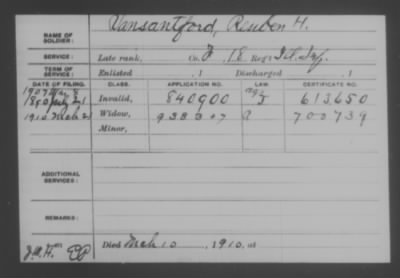 Vansantford, Reuben H.
NAME OF SOLDIER:
SERVICE: Late rank, Co. F, 18 Reg't Ill. Inf.
TERM OF SERVICE: Enlisted , 1 Discharged , 1
DATE OF FILING. CLASS. APPLICATION NO. LAW. CERTIFICATE NO.
1907
1890 July 21 Invalid, 840900 J 613650
1910 Mch 21 Widow, 938307 a 700739
Minor,
ADDITIONAL SERVICES:
REMARKS:
Died Mch 10, 1910, at